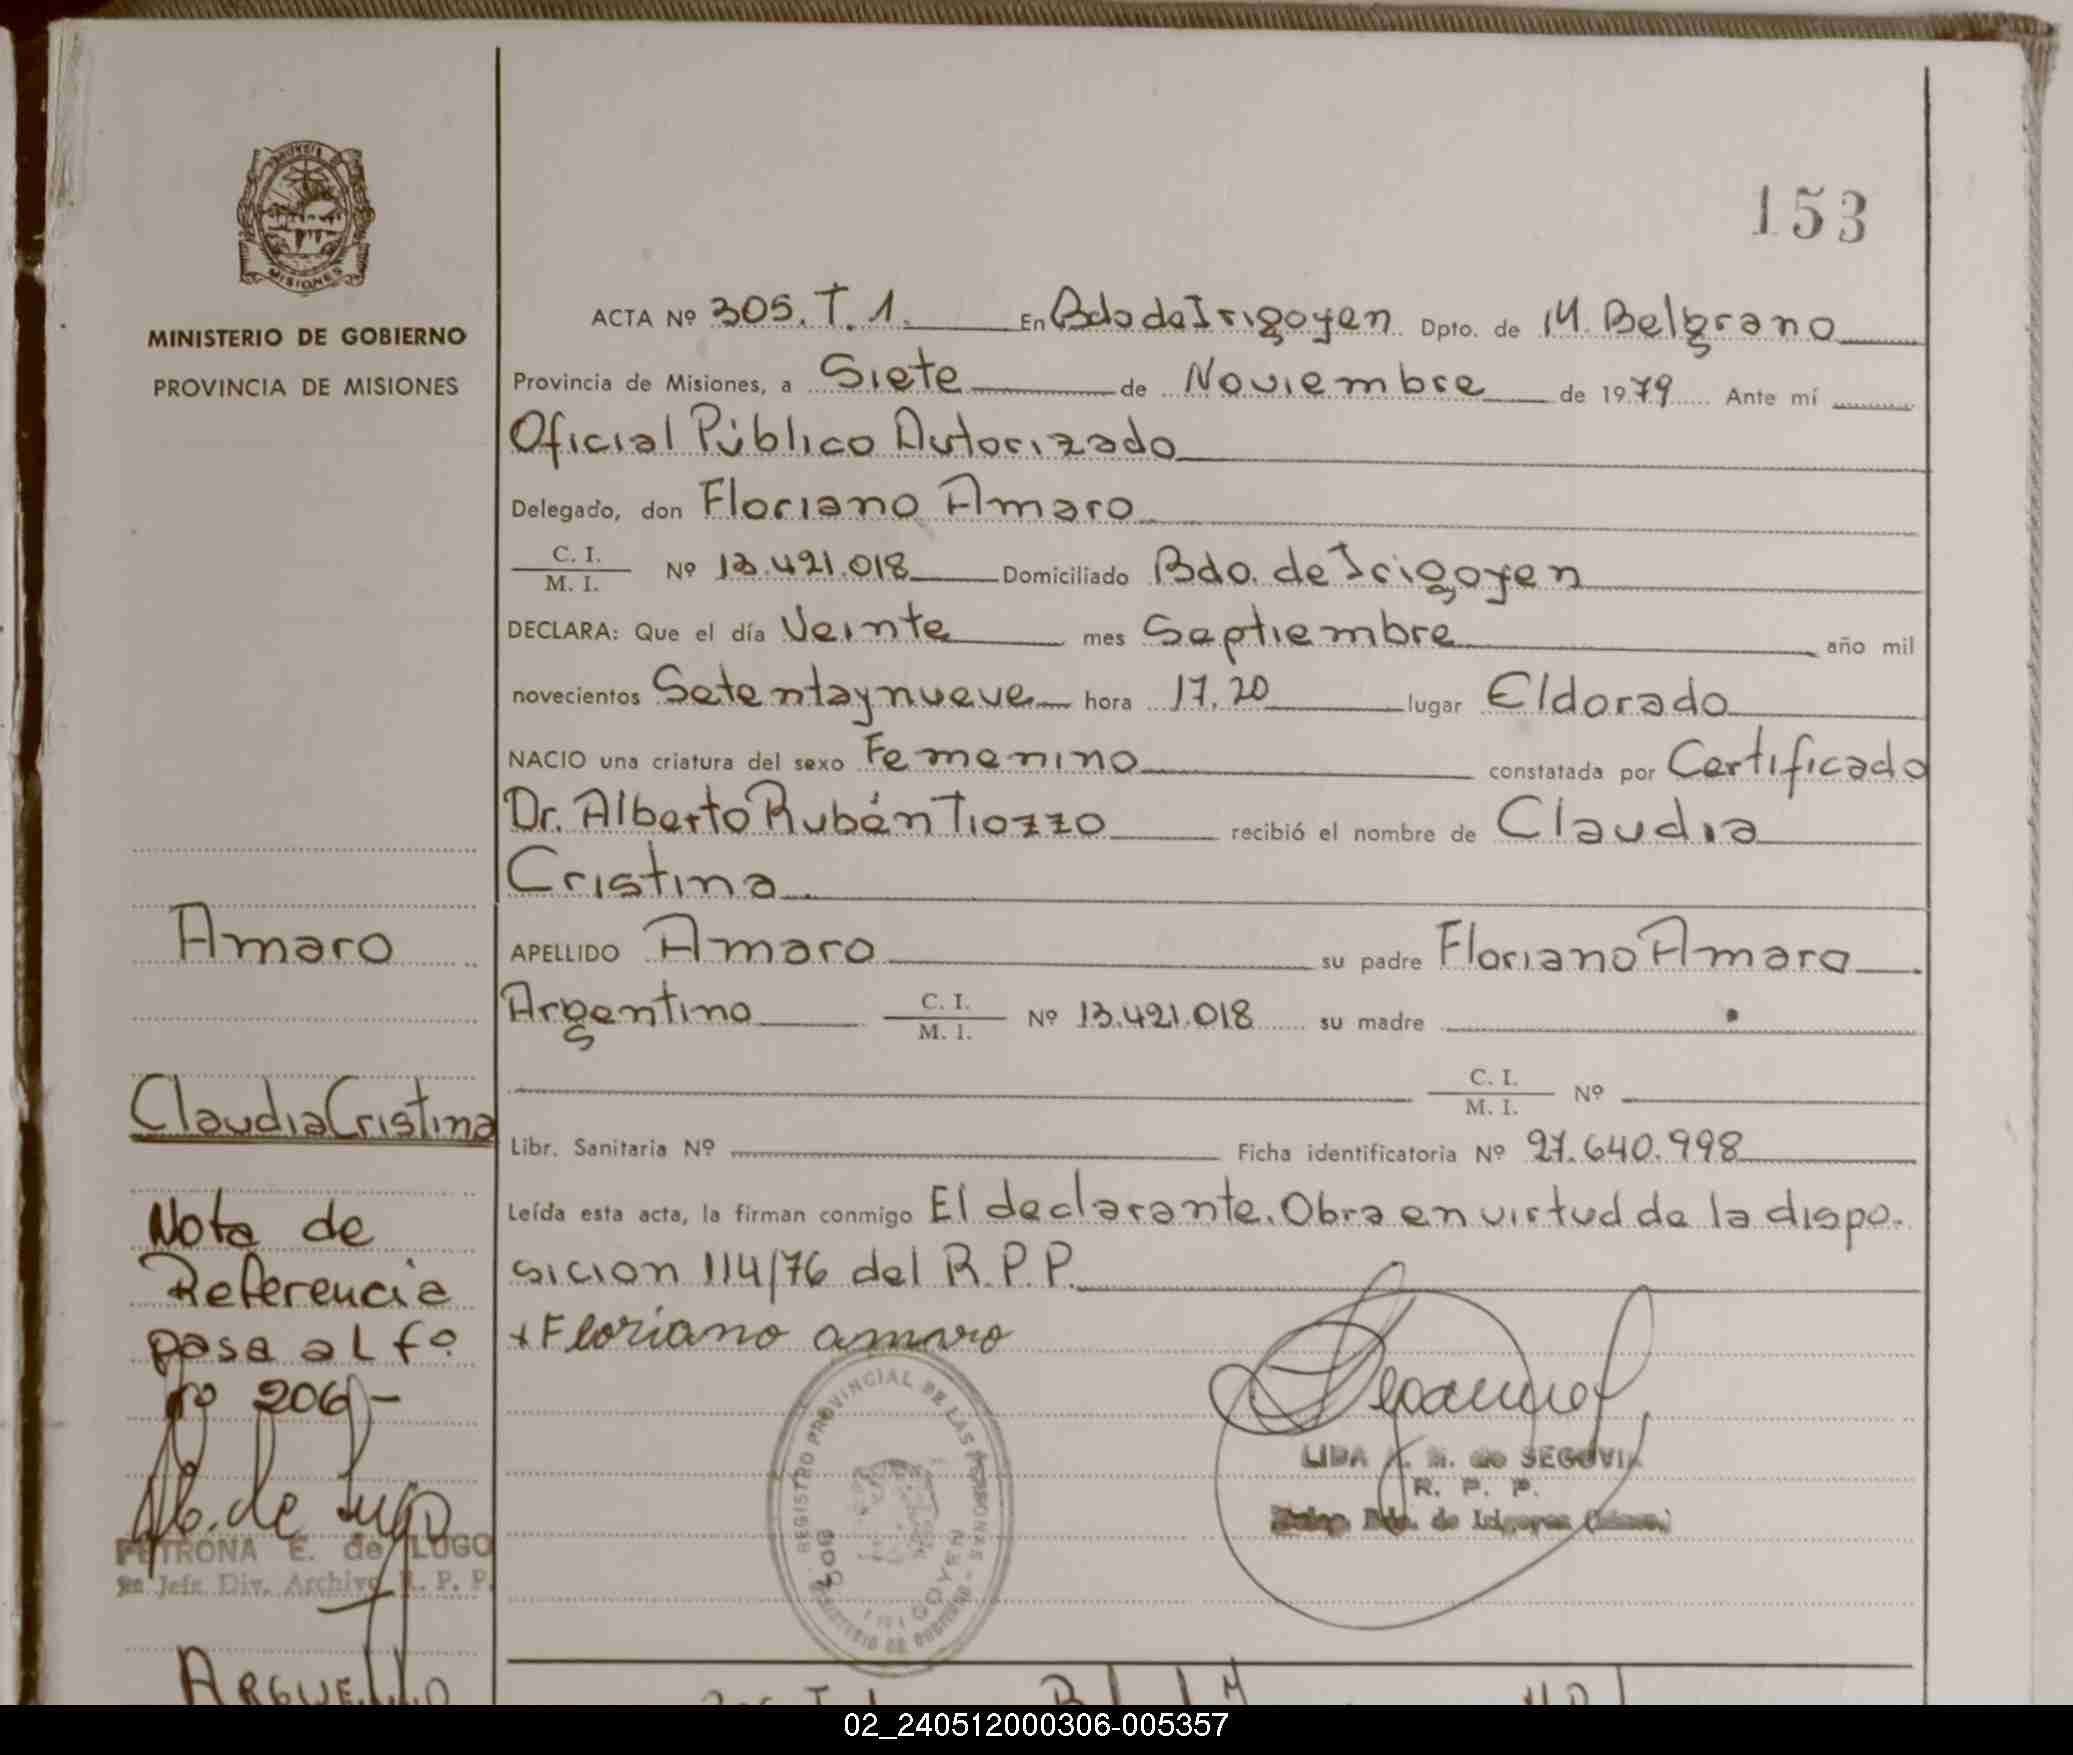 153
MISIONES
MINISTERIO DE GOBIERNO
PROVINCIA DE MISIONES
ACTA Nº 305. T. 1. En Bdo de Irigoyen Dpto. de M. Belgrano
Provincia de Misiones, a Siete de Noviembre de 1979 Ante mí
Oficial Público Autorizado
Delegado, don Floriano Amaro
C. I.
M. I. Nº 13.421.018 Domiciliado Bdo. de Irigoyen
DECLARA: Que el día Veinte mes Septiembre año mil
novecientos Setentaynueve hora 17,20 lugar Eldorado
NACIO una criatura del sexo Femenino constatada por Certificado
Dr. Alberto Rubén Tiozzo recibió el nombre de Claudia
Cristina
APELLIDO Amaro su padre Floriano Amaro
Argentino C. I.
M. I. Nº 13.421.018 su madre
C. I.
M. I. Nº
Libr. Sanitaria Nº Ficha identificatoria Nº 27.640.998
Leída esta acta, la firman conmigo El declarante. Obra en virtud de la dispo.
sicion 114/76 del R.P.P.
+Floriano amaro
REGISTRO PROVINCIAL DE LAS PERSONAS
IRIGOYEN
LIDA M. de SEGOVIA
R. P. P.
Amaro
Claudia Cristina
Nota de
Referencia
pasa al fº
nº 206-
PETRONA E. de LUGO
Jefe Div. Archivo R. P. P.
ARGUELLO
02_240512000306-005357